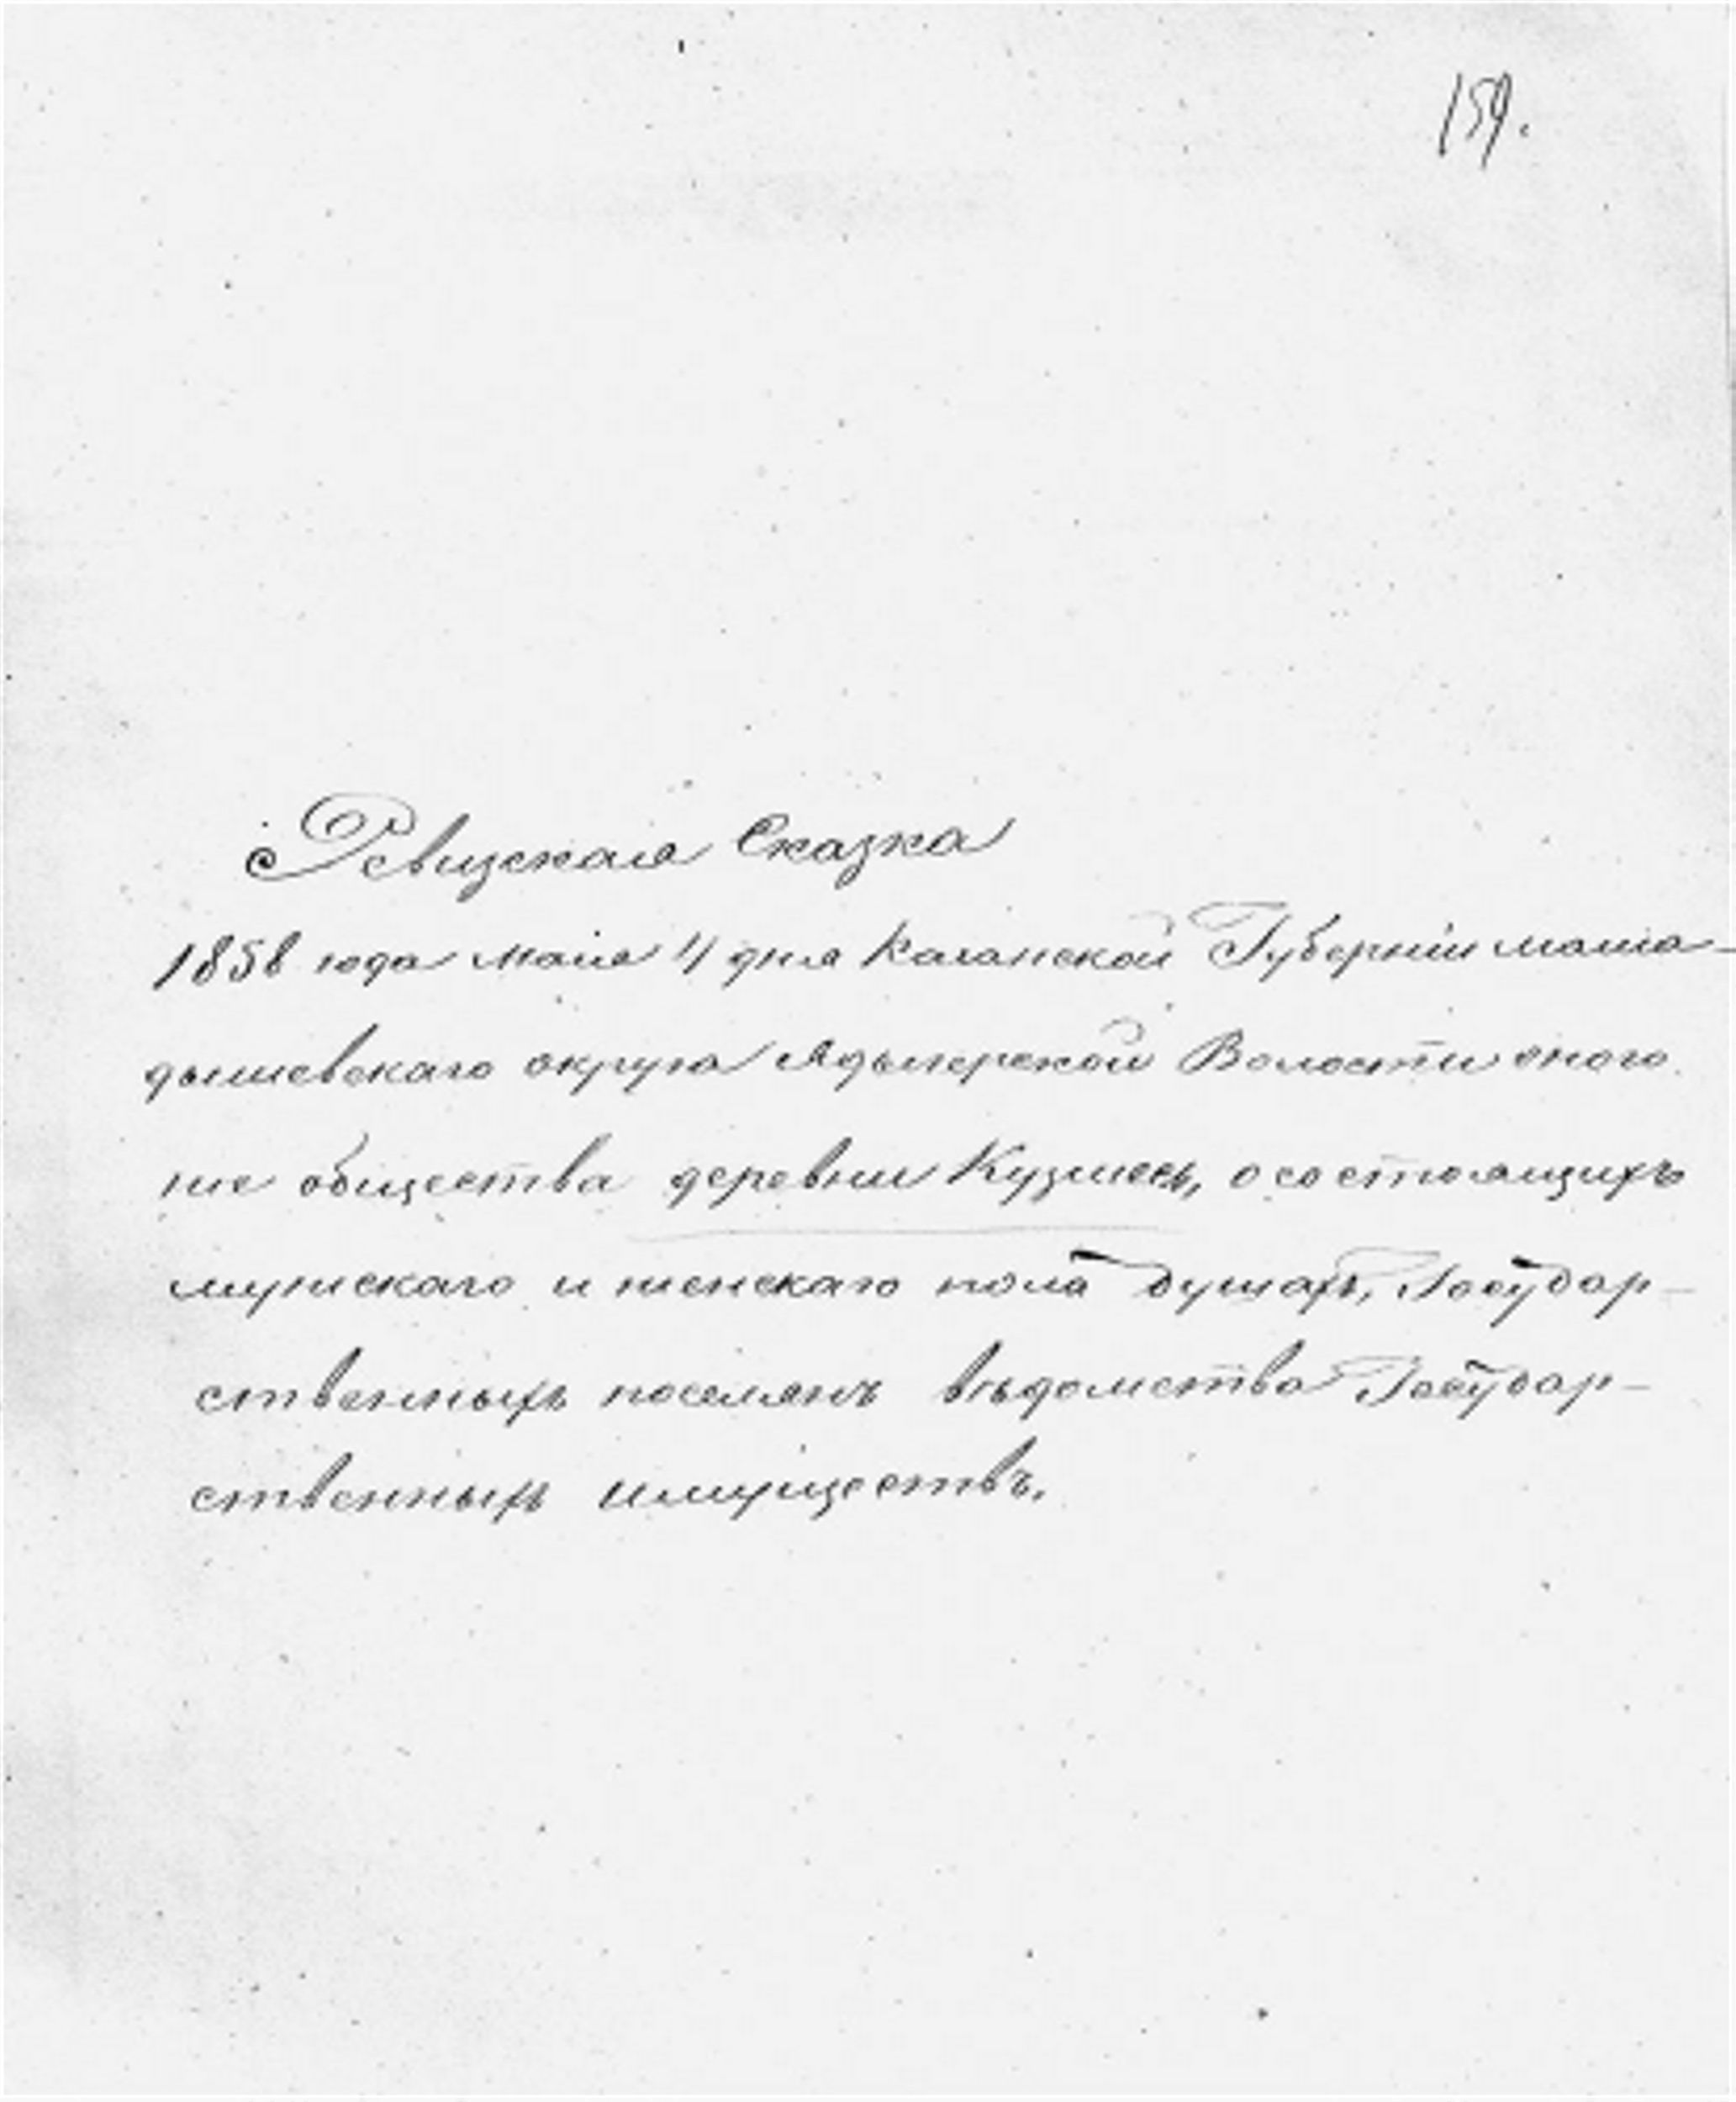 159.
Ревизская Сказка
1858 года мая 11 дня Казанской Губернiи мама-
дышевскаго округа Адыгерской Волости оного
же общества деревни Кузмесь, о состоящихъ
мужескаго и женскаго пола душахъ, Государ-
ственныхъ поселянъ вѣдомства Государ-
ственныхъ имуществъ.